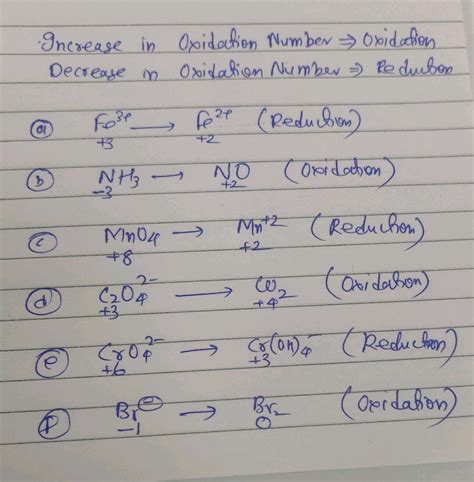 Increase in Oxidation Number ⇒ Oxidation
Decrease in Oxidation Number ⇒ Reduction
(a) Fe³⁺ → Fe²⁺ (Reduction)
+3 +2
(b) NH₃ → NO (Oxidation)
-3 +2
(c) MnO₄ → Mn⁺² (Reduction)
+8 +2
(d) C₂O₄²⁻ → CO₂ (Oxidation)
+3 +4
(e) CrO₄²⁻ → Cr(OH)₄⁻ (Reduction)
+6 +3
(f) Br⊖ → Br₂ (Oxidation)
-1 0